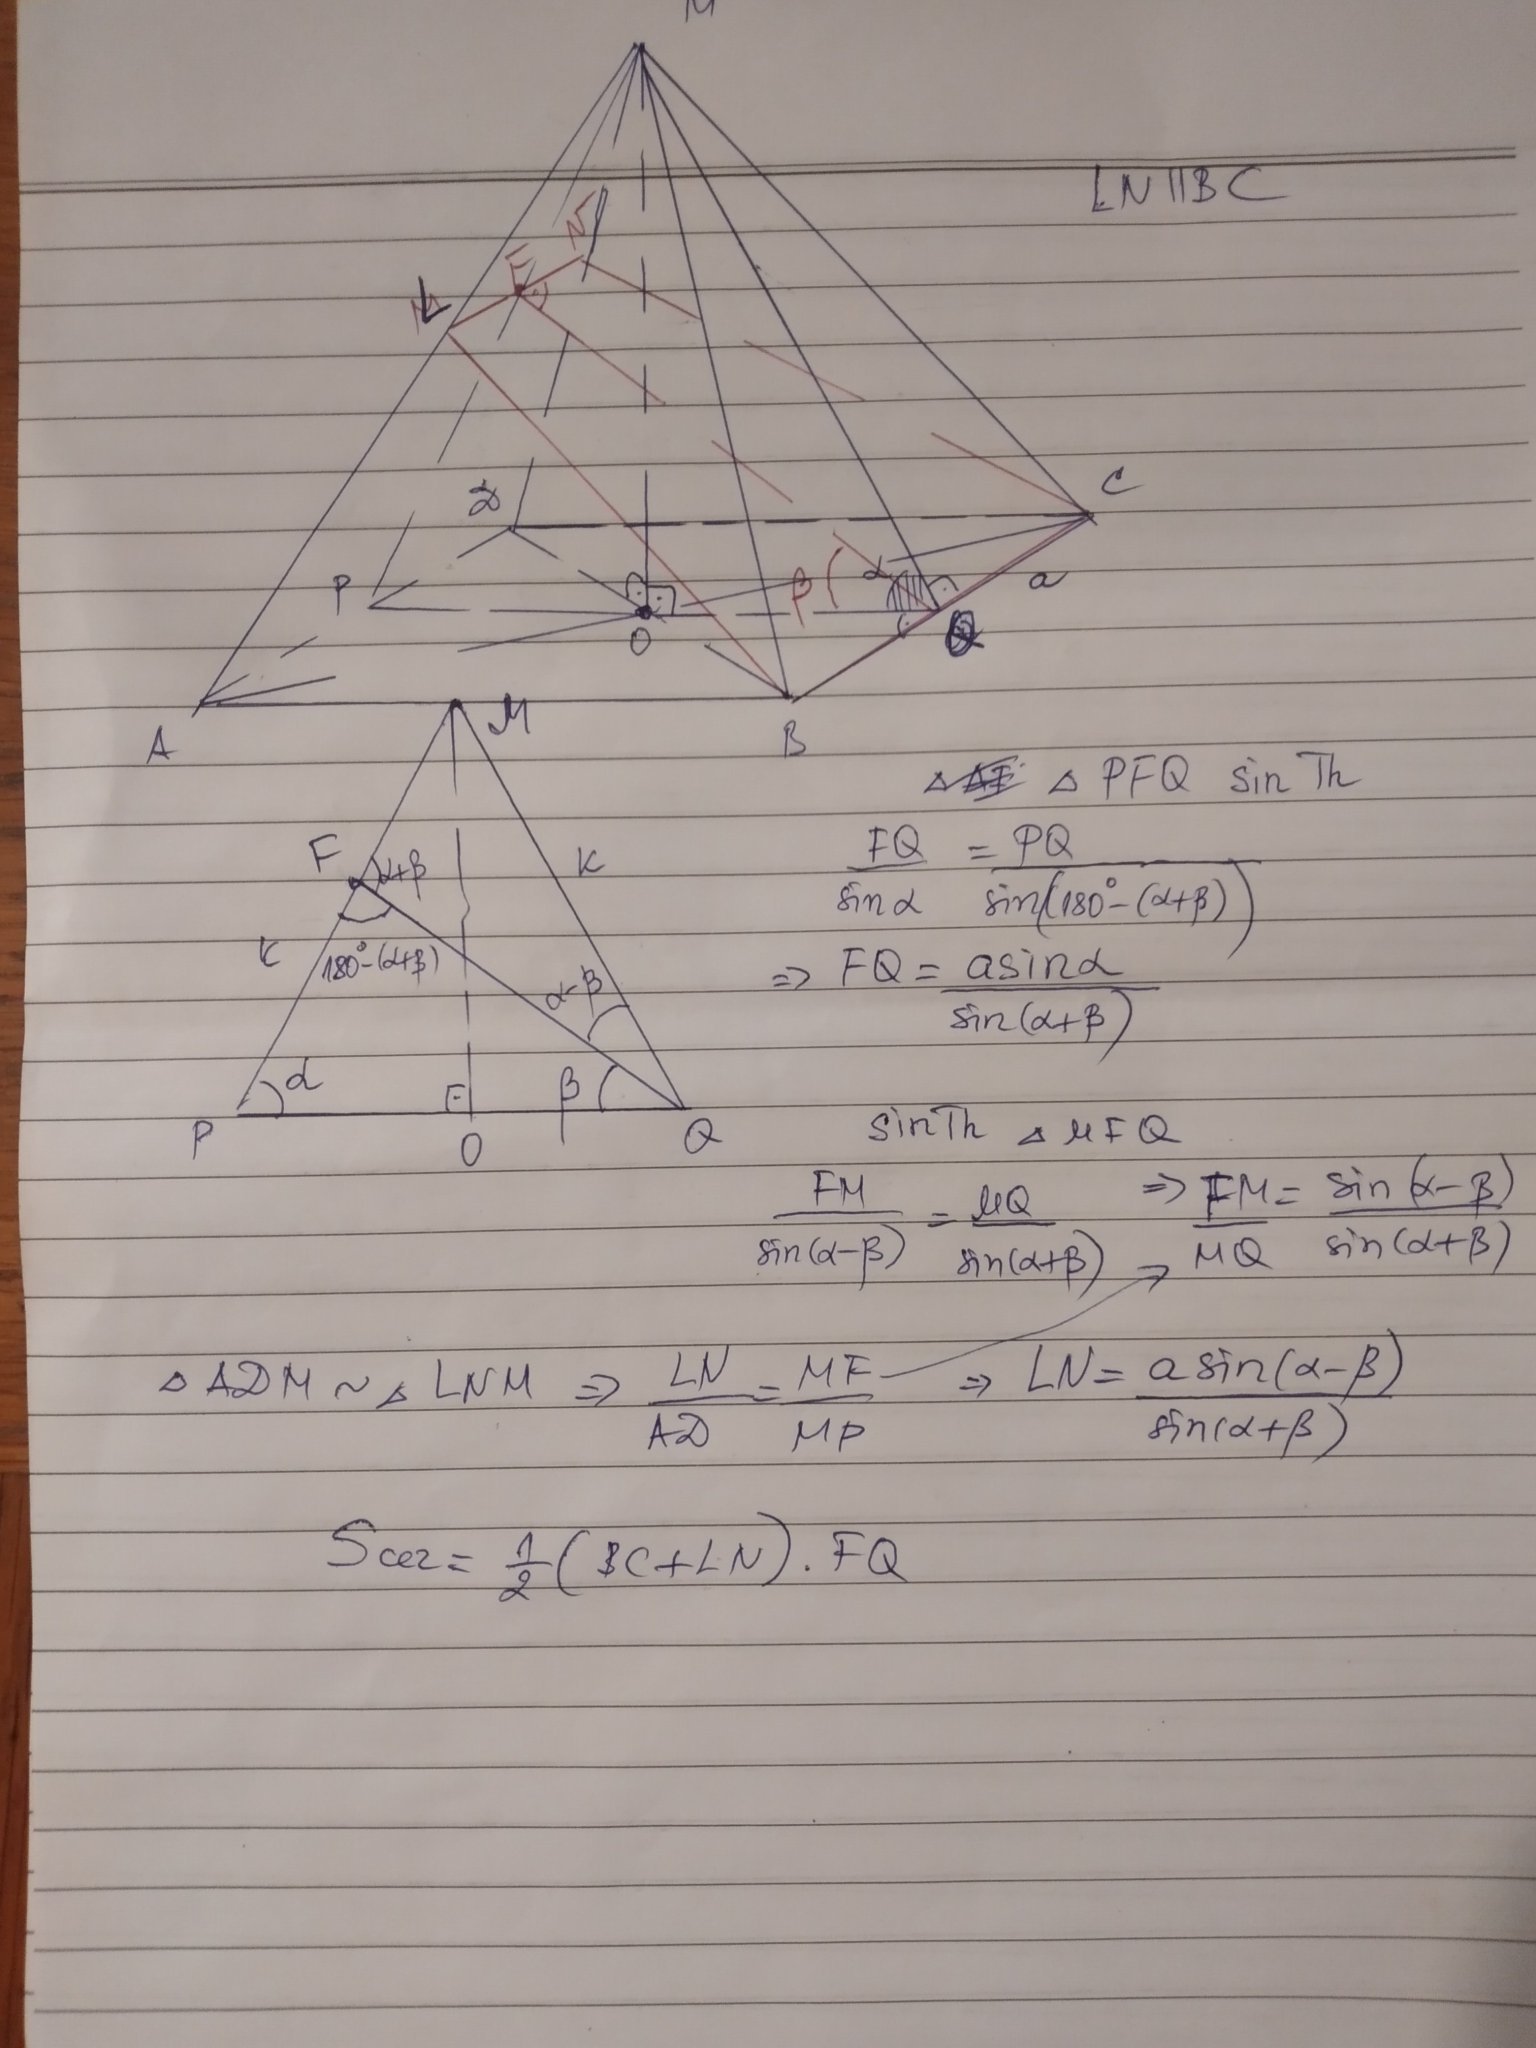 M
LN || BC
L F N
D
C
P
β α
a
O
Q
A
B
M
F α+β
K
K
180°-(α+β)
α-β
α
β
P
O
Q
△ PFQ sin Th
FQ/sin α = PQ/sin(180°-(α+β))
=> FQ = a sin α/sin(α+β)
sin Th △ MFQ
FM/sin(α-β) = MQ/sin(α+β) => FM/MQ = sin(α-β)/sin(α+β)
△ ADM ~ △ LNM => LN/AD = MF/MP => LN = a sin(α-β)/sin(α+β)
Sсег = 1/2 (BC+LN) . FQ